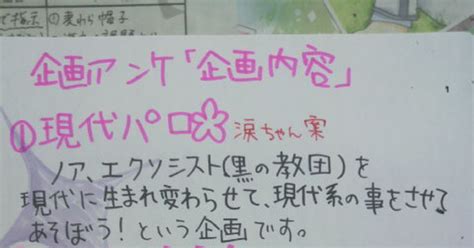 で指示 ①変わら帽子
企画アンケ「企画内容」
①現代パロ 涙ちゃん案
ノア、エクソシスト(黒の教団)を
現代に生まれ変わらせて、現代系の事をさせて
あそぼう!という企画です。